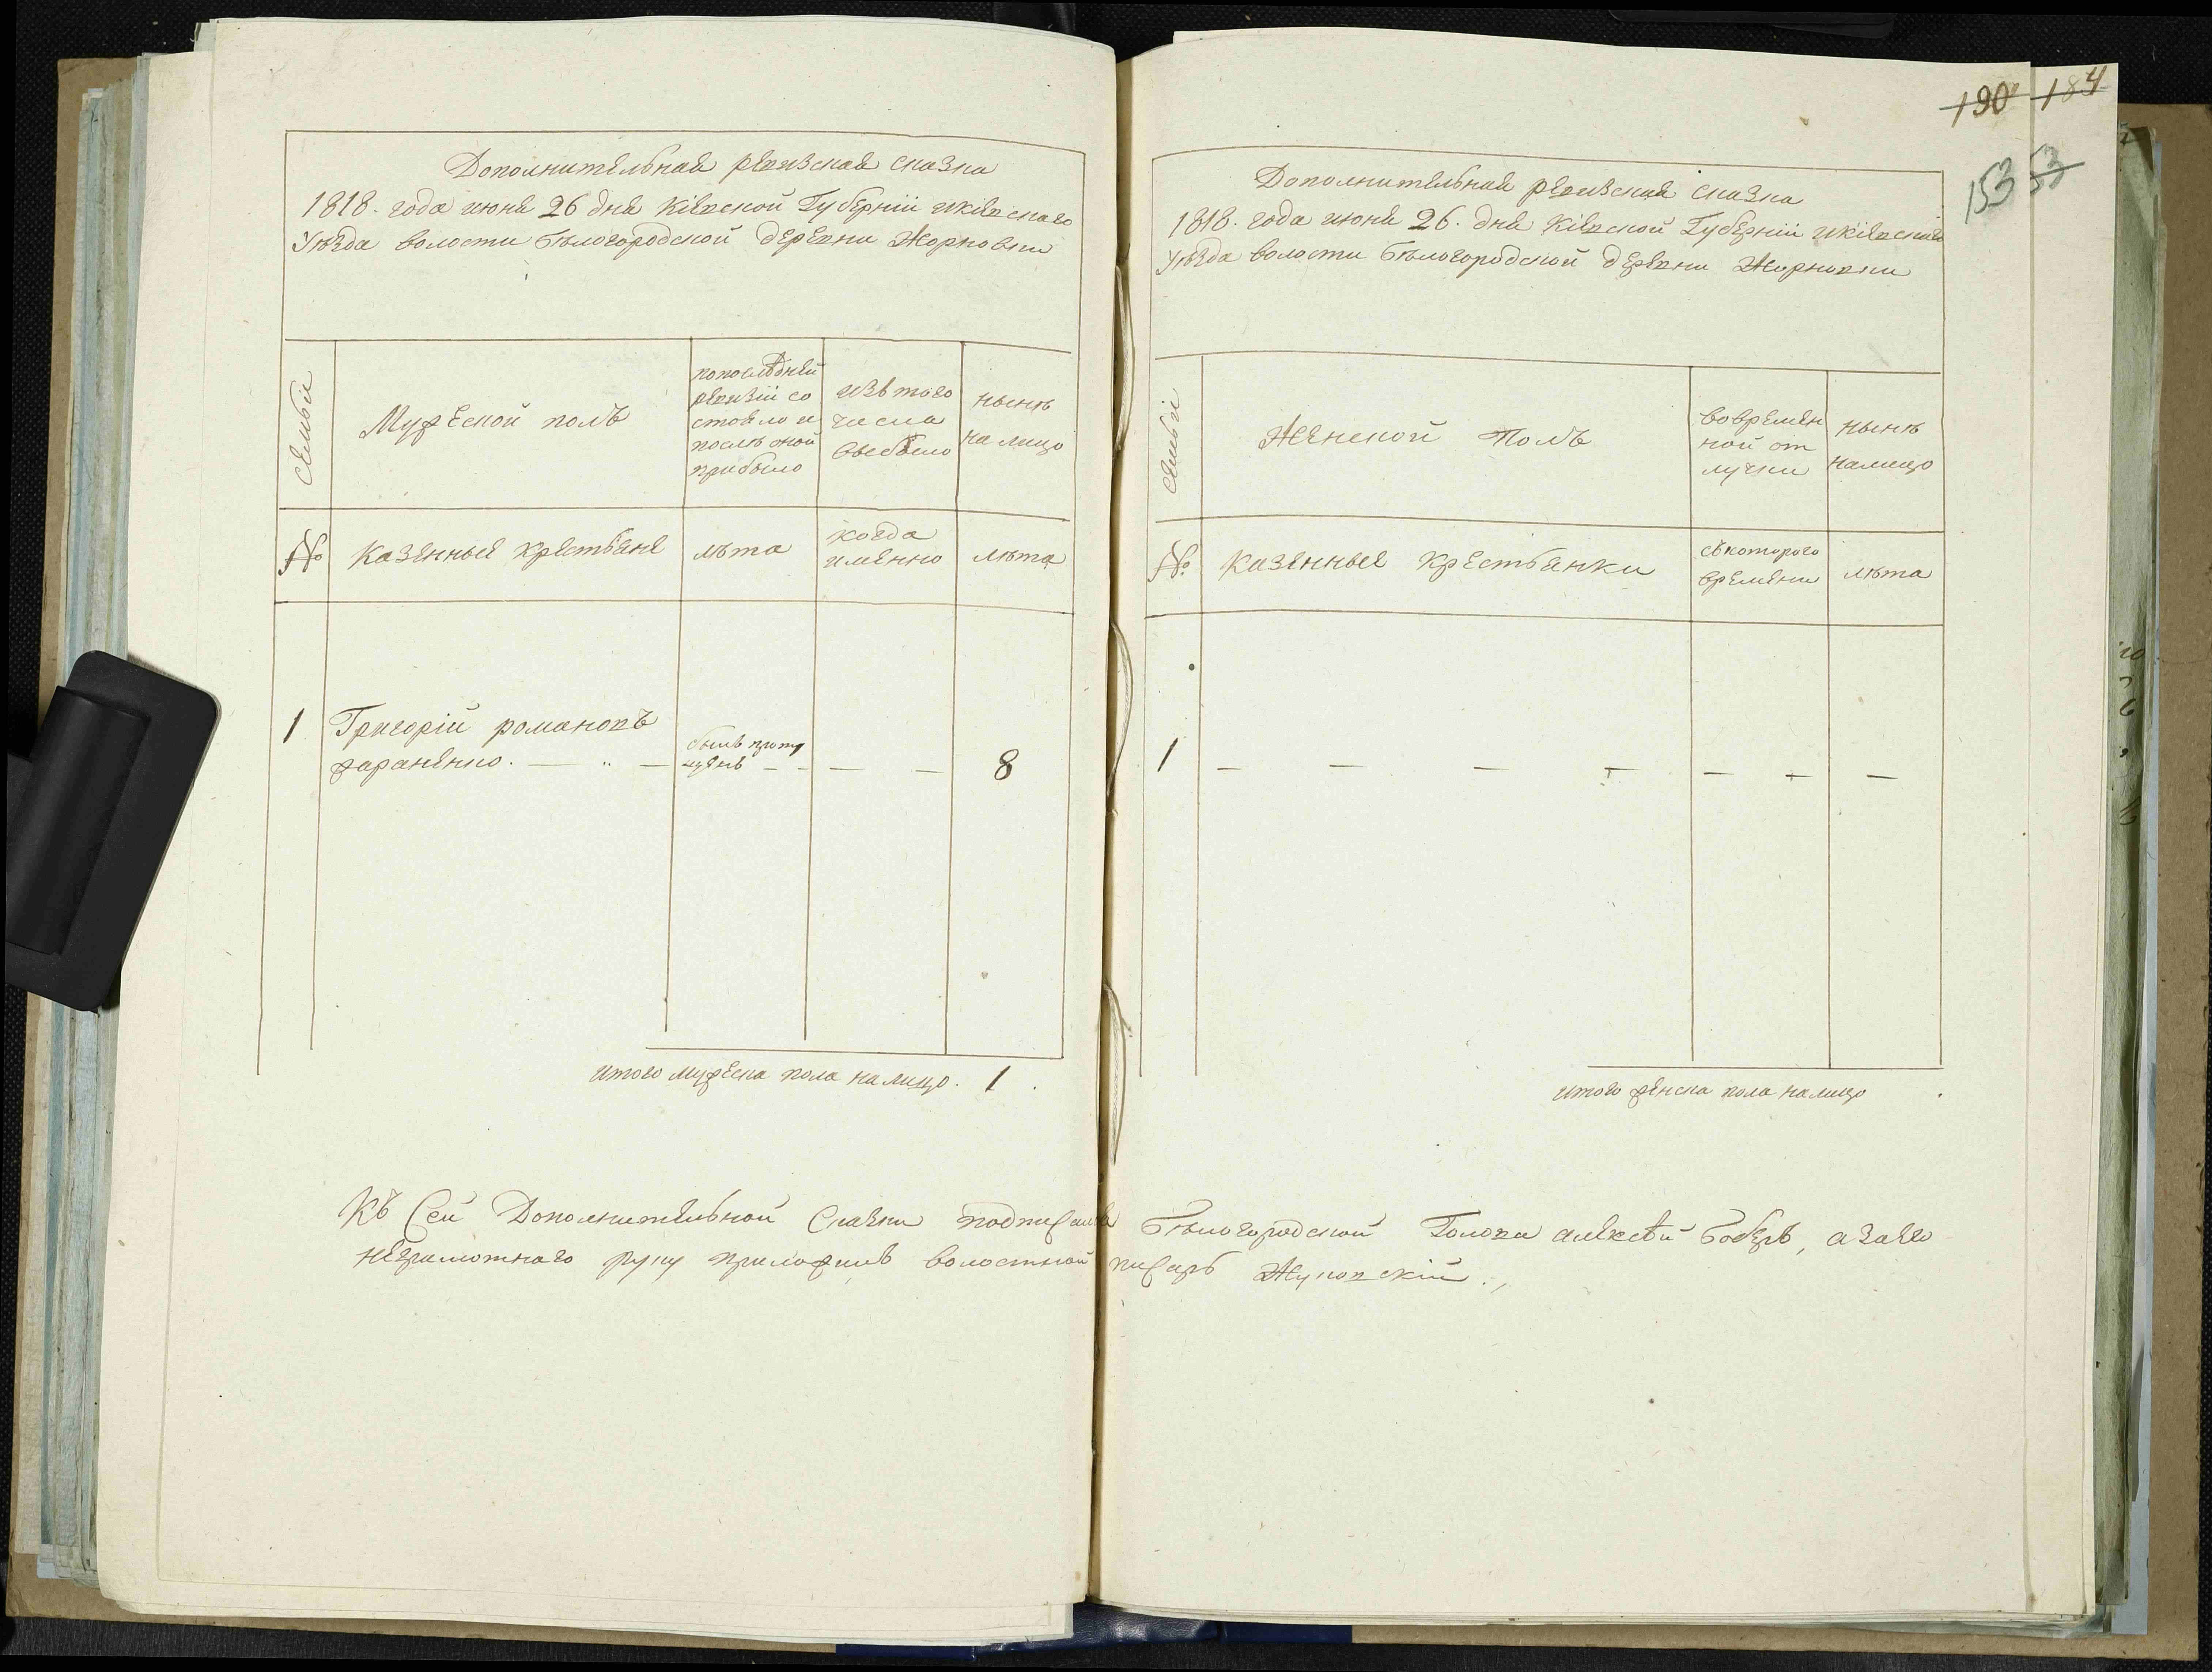 Дополнительная ревизская сказка
1818. года июня 26 дня Кіевской Губерніи и кіевскаго
Уѣзда волости Бѣлогородской деревни Жорновки
Семьи
Мужеской полъ
по послѣдней
ревизіи со
стояло и
послѣ оной
прибыло
изъ того
числа
выбыло
нынѣ
на лицо
№
Казенные крестьяне
лѣта
когда
именно
лѣта
1
Григорій романовъ
— " —
— —
— —
8
итого мужеска пола на лицо. 1.
190 184
153 53
Дополнительная ревизская сказка
1818. года июня 26. дня Кіевской Губерніи и кіевскаго
Уѣзда волости Бѣлогородской деревни Жорновки
Семьи
Женской полъ
во времен
ной от
лучки
нынѣ
на лицо
№
Казенные крестьянки
съ котораго
времени
лѣта
1 — — — — — — —
итого женска пола на лицо
Къ Сей Дополнительной Сказки подписался Бѣлогородской Голова алексѣй Бобырь, а за его
неграмотнаго руку приложилъ волостной писарь Жуковскій.